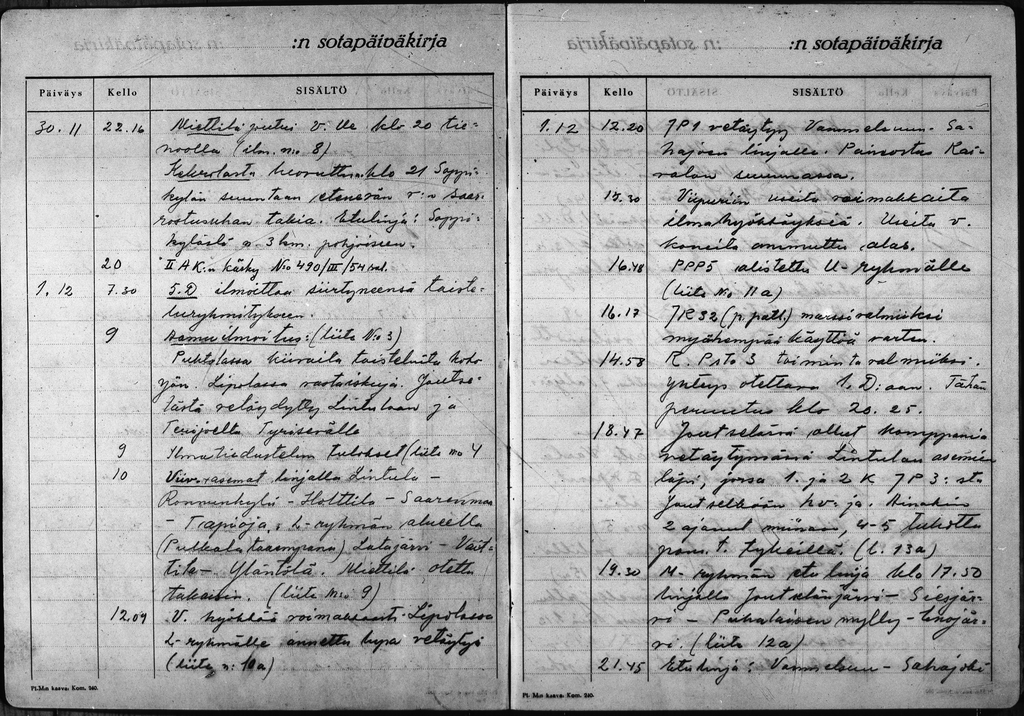 :n sotapäiväkirja
Päiväys Kello SISÄLTÖ
30.11 22.16 Miettilä joutui v. lle klo 20 tie-
noolla (ilm. n:o 8)
klo 21 Sappi-
kylän suuntaan etenevän v:n saar-
rostusuhan takia. Etulinja: Sappi-
kylästä n. 3 km. pohjoiseen.
20 II AK:n käsky N:o 490/III/54 sal.
1.12 7.30 5.D ilmoittaa siirtyneensä taiste-
luryhmitykseen.
9 Aamuilmoitus: (liite N:o 3)
kiivaita taisteluita koko
yön. Lipolassa vastaiskuja. Joutse-
lästä vetäydytty Lintulaan ja
Terijoelta Tyrisevälle
9 Ilmatiedustelun tulokset (liite no 4
10 Viivytysasemat linjalla Lintula -
Ronnunkylä - Holttila - Saarenmaa
- Trapioja, L-ryhmän alueella
(Puikkola taaempana) Latajärvi - Vait-
tila - Yläntölä. Miettilä otettu
takaisin. (liite n:o 9)
12.09 V. hyökkää voimakkaasti Lipolassa
L-ryhmälle annettu lupa vetäytyä
(liite n: 10a)
Pl.M:n kasva. Kom. 260.
:n sotapäiväkirja
Päiväys Kello SISÄLTÖ
1.12 12.20 JP1 vetäytyy Vammelsuun - Sa-
hajoen linjalle. Painostus Kai-
valan suunnassa.
15.30 Viipuriin useita voimakkaita
ilmahyökkäyksiä. Useita v.
koneita ammuttu alas.
16.48 PPP5 alistettu U-ryhmälle
(liite No 11a)
16.17 JR32 (p. patl.) marssivalmiiksi
myöhempää käyttöä varten.
14.58 R. Psto 3 toimintavalmiiksi.
Yhteys otettava 1. D:aan. Tähän
peruutus klo 20.25.
18.47 Joutselässä ollut komppania
vetäytymässä Lintulan asemien
läpi, jossa 1. ja 2 K JP3:sta
Joutselkään hv. ja. Ainakin
2 ajanut miinaan, 4-5 tuhottu
pans. t. tykeillä. (l. 13a)
19.30 M-ryhmän etulinja klo 17.50
linjalla Joutselänjärvi - Suesjär-
vi - Puhalaisen mylly - Linojär-
vi. (liite 12a)
21.45 Etulinja: Vammelsuu - Sahajoki
Pl. M:n kasva. Kom. 260.